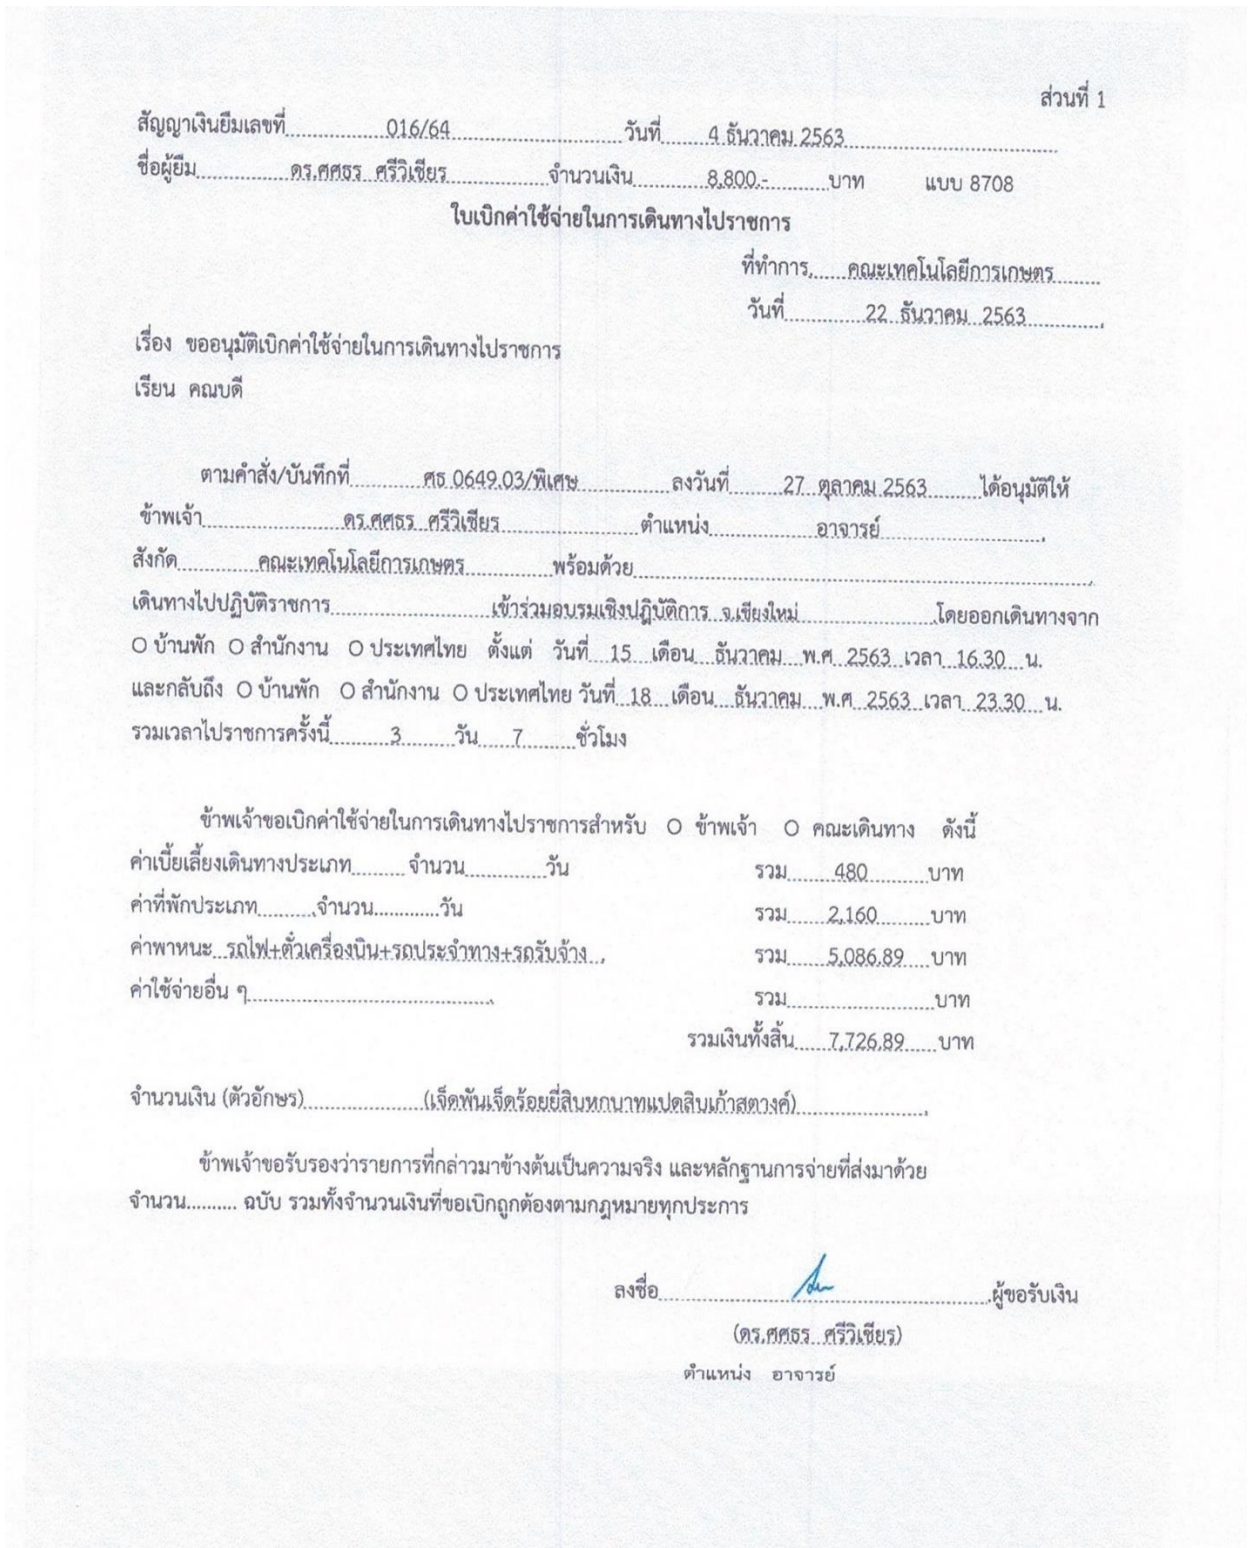 ส่วนที่ 1
สัญญาเงินยืมเลขที่ 016/64 วันที่ 4 ธันวาคม 2563
ชื่อผู้ยืม ดร.ศศธร ศรีวิเชียร จำนวนเงิน 8,800.- บาท แบบ 8708
ใบเบิกค่าใช้จ่ายในการเดินทางไปราชการ
ที่ทำการ คณะเทคโนโลยีการเกษตร
วันที่ 22 ธันวาคม 2563
เรื่อง ขออนุมัติเบิกค่าใช้จ่ายในการเดินทางไปราชการ
เรียน คณบดี
ตามคำสั่ง/บันทึกที่ ศธ 0649.03/พิเศษ ลงวันที่ 27 ตุลาคม 2563 ได้อนุมัติให้
ข้าพเจ้า ดร.ศศธร ศรีวิเชียร ตำแหน่ง อาจารย์
สังกัด คณะเทคโนโลยีการเกษตร พร้อมด้วย
เดินทางไปปฏิบัติราชการ เข้าร่วมอบรมเชิงปฏิบัติการ จ.เชียงใหม่ โดยออกเดินทางจาก
O บ้านพัก O สำนักงาน O ประเทศไทย ตั้งแต่ วันที่ 15 เดือน ธันวาคม พ.ศ 2563 เวลา 16.30 น.
และกลับถึง O บ้านพัก O สำนักงาน O ประเทศไทย วันที่ 18 เดือน ธันวาคม พ.ศ 2563 เวลา 23.30 น.
รวมเวลาไปราชการครั้งนี้ 3 วัน 7 ชั่วโมง
ข้าพเจ้าขอเบิกค่าใช้จ่ายในการเดินทางไปราชการสำหรับ O ข้าพเจ้า O คณะเดินทาง ดังนี้
ค่าเบี้ยเลี้ยงเดินทางประเภท จำนวน วัน รวม 480 บาท
ค่าที่พักประเภท จำนวน วัน รวม 2,160 บาท
ค่าพาหนะ รถไฟ+ตั๋วเครื่องบิน+รถประจำทาง+รถรับจ้าง รวม 5,086.89 บาท
ค่าใช้จ่ายอื่น ๆ รวม บาท
รวมเงินทั้งสิ้น 7,726.89 บาท
จำนวนเงิน (ตัวอักษร) (เจ็ดพันเจ็ดร้อยยี่สิบหกบาทแปดสิบเก้าสตางค์)
ข้าพเจ้าขอรับรองว่ารายการที่กล่าวมาข้างต้นเป็นความจริง และหลักฐานการจ่ายที่ส่งมาด้วย
จำนวน.......... ฉบับ รวมทั้งจำนวนเงินที่ขอเบิกถูกต้องตามกฎหมายทุกประการ
ลงชื่อ ผู้ขอรับเงิน
(ดร.ศศธร ศรีวิเชียร)
ตำแหน่ง อาจารย์